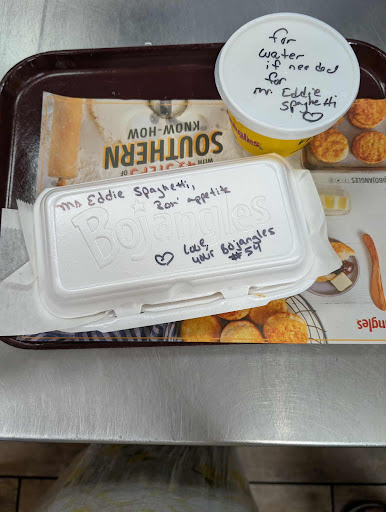 for
water
if needed
for
mr. Eddie
Spaghetti
WITH 48 STEPS OF
SOUTHERN
KNOW-HOW
Mr Eddie Spaghetti,
Bon' appetite
Bojangles
Love,
your Bojangles
#54
BOJANGLES